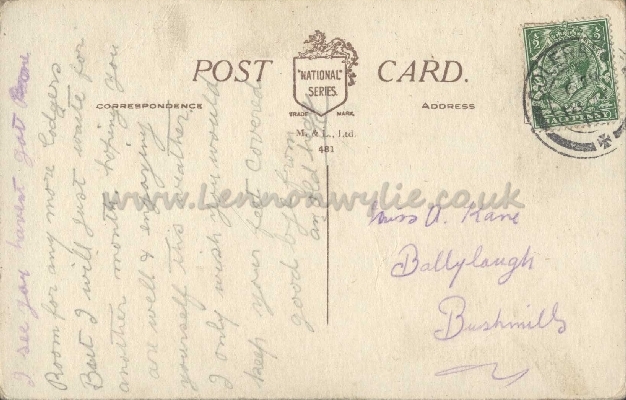 POST CARD.
"NATIONAL"
SERIES
TRADE MARK.
CORRESPONDENCE
ADDRESS
M. & L., Ltd.
481
I see you havent got
Room for any more Lodgers
But I will just waite for
another month. hoping you
are well & enjoying
yourself this weather
I only wish you would
keep your feet covered
good bye from
an old
Miss A. Kane
Ballylough
Bushmills
www.Lennonwylie.co.uk